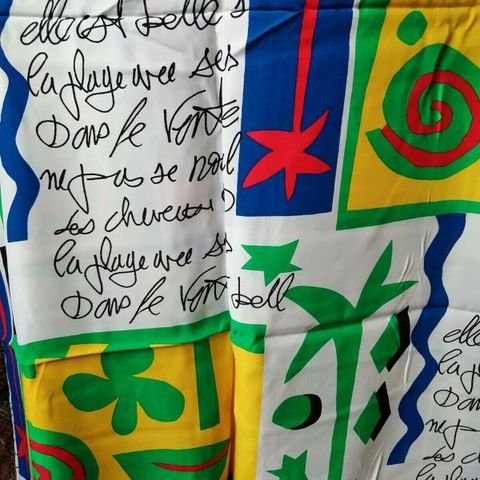 elle est belle s
la plage avec ses
Dans le Vente
ne pas se noi
ses cheveux
la plage avec ses
Dans le Vent belle
elle
la pla
Dan
ne p
ses c
la plage